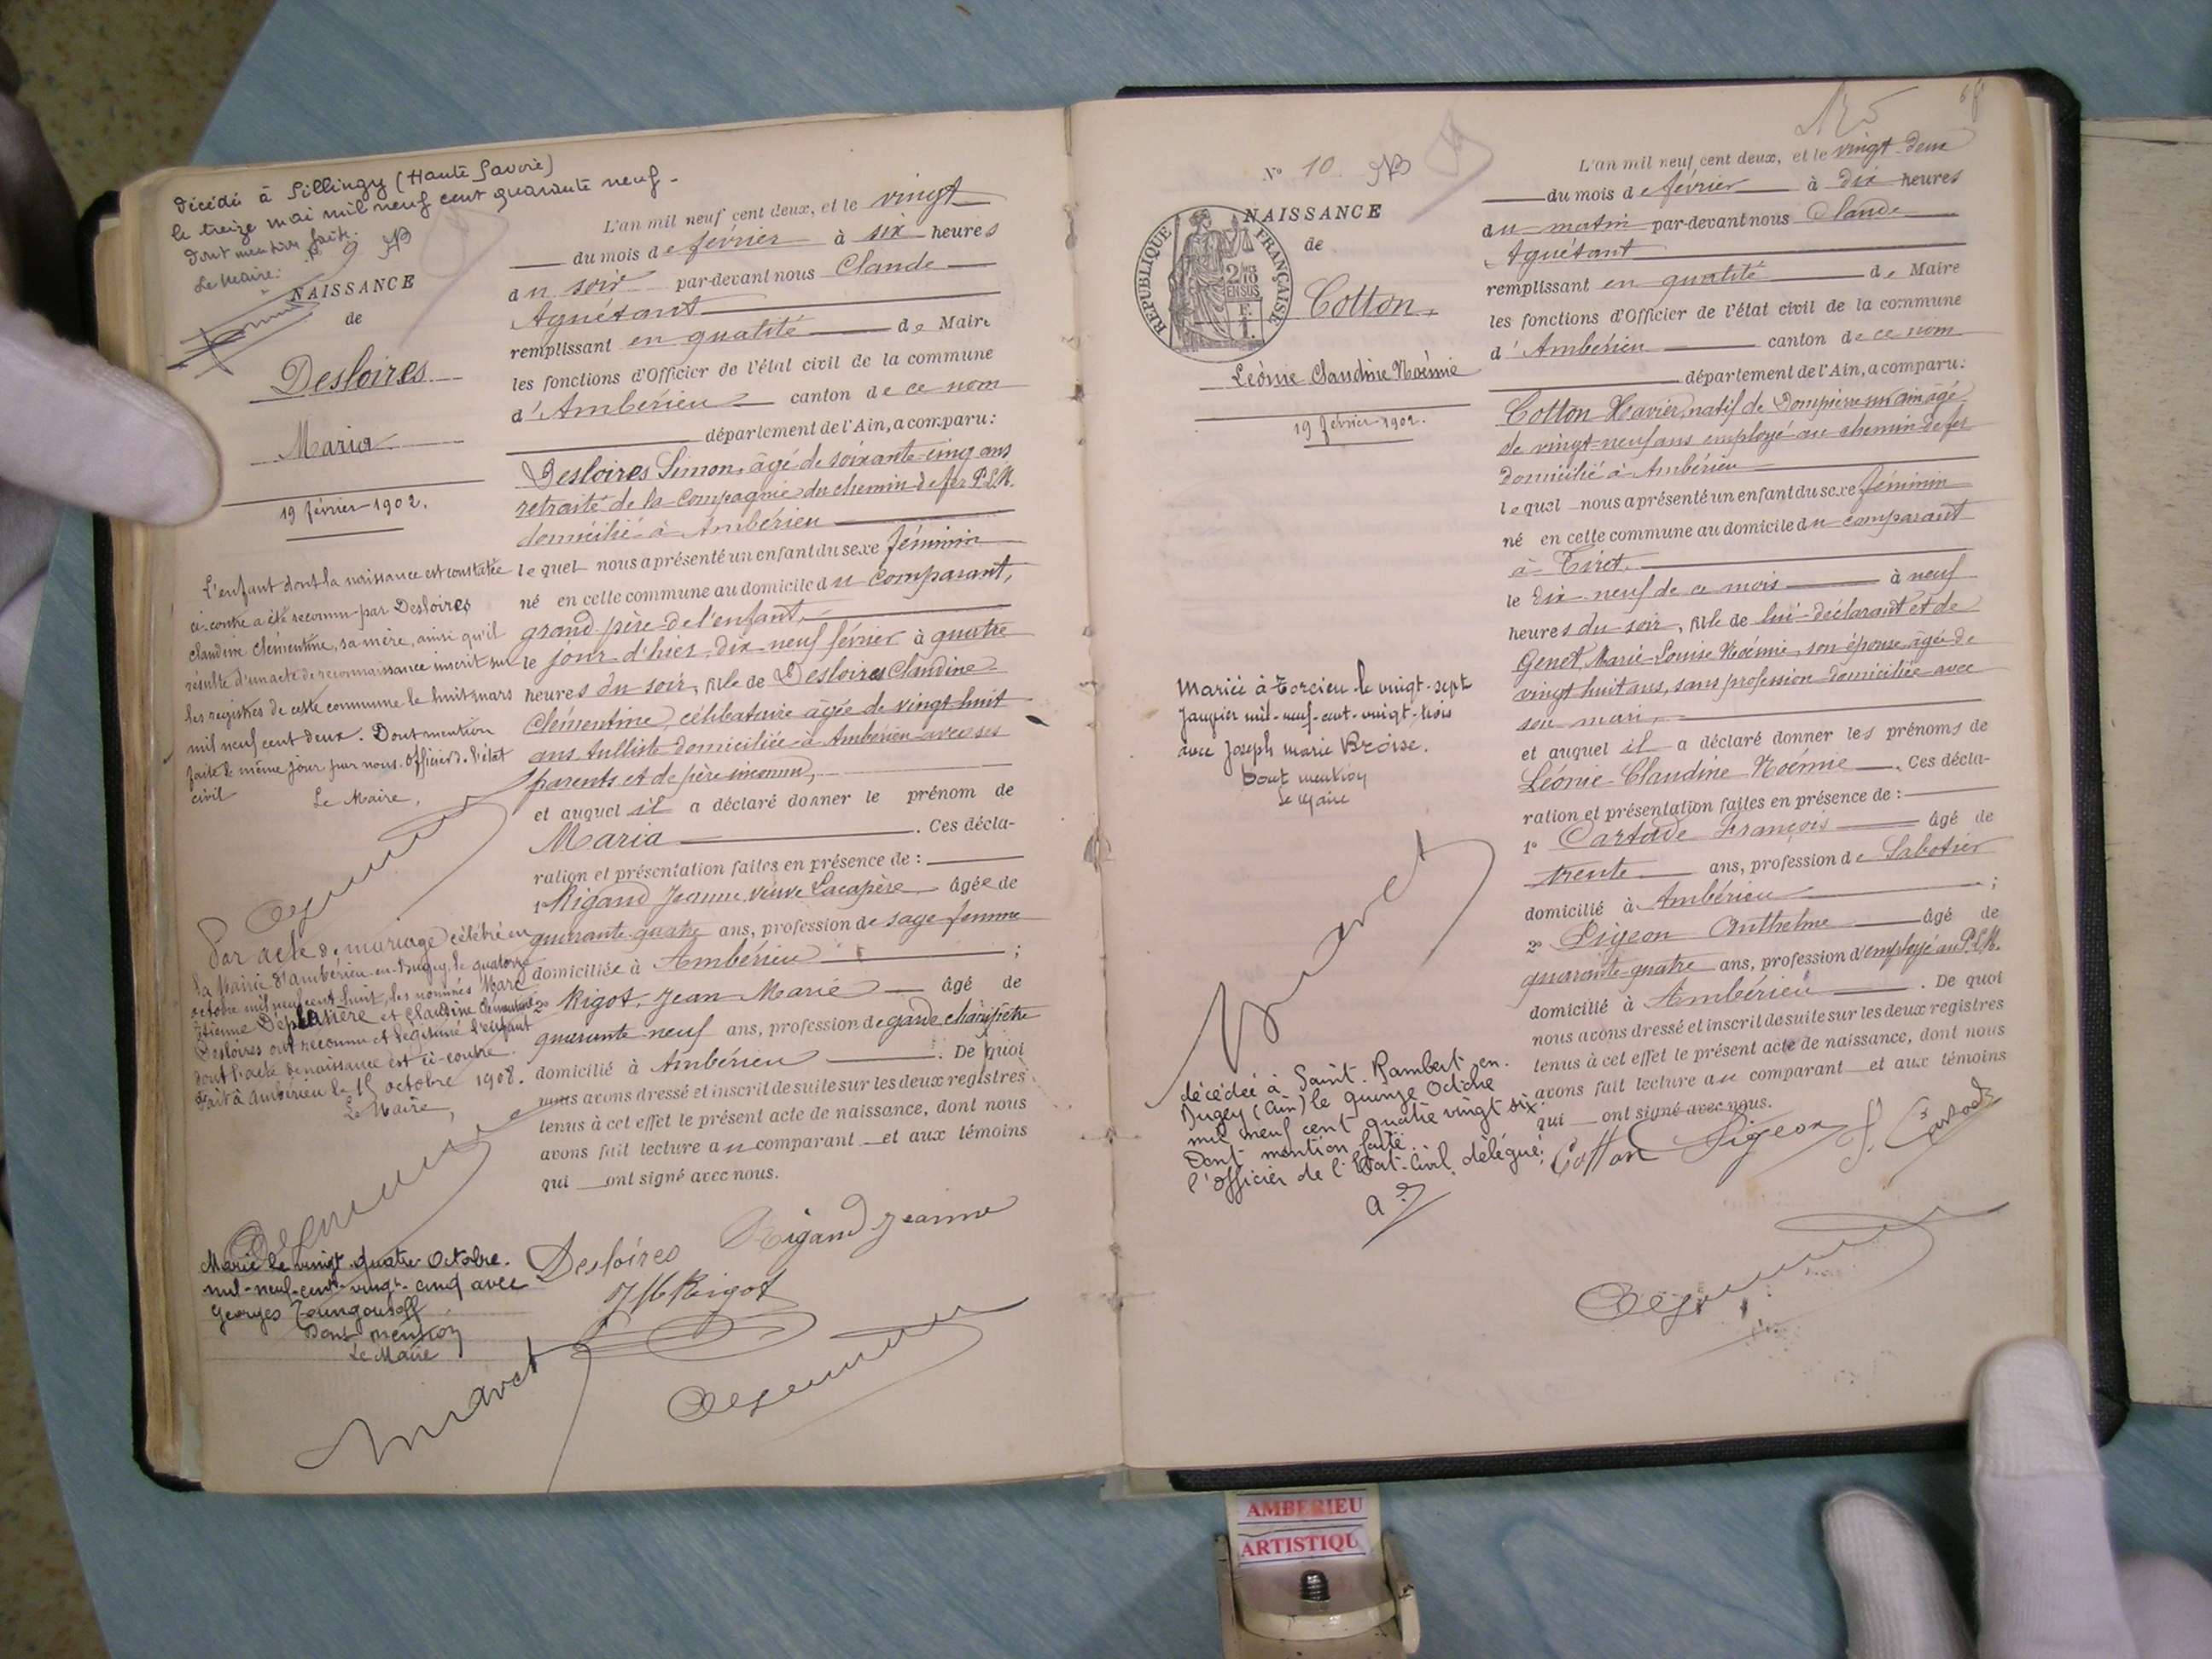 Décédé à Sillingy (Haute Savoie)
le treize mai mil neuf cent quarante neuf.
Dont mention faite.
Le Maire.
9
NAISSANCE
de
Desloires
Maria
19 février 1902.
L'enfant dont la naissance est constatée
ci-contre a été reconnu par Desloires
Claudine Clémentine, sa mère, ainsi qu'il
résulte d'un acte de reconnaissance inscrit sur
les registres de cette commune le huit mars
mil neuf cent deux. Dont mention
faite le même jour par nous. Officier de l'état
civil
Le Maire,
Par acte de mariage célébré en
la mairie d'Ambérieu-en-Bugey, le quatorze
octobre mil neuf cent huit, les nommés Marc
Etienne Deplatière et Claudine Clémentine
Desloires ont reconnu et légitimé l'enfant
dont l'acte de naissance est ci-contre.
Fait à Ambérieu le 15 octobre 1908.
Le Maire,
Marié le vingt-quatre Octobre
mil-neuf-cent-vingt-cinq avec
Georges
Dont mention
Le Maire
L'an mil neuf cent deux, et le vingt
du mois de février à six heures
du soir par-devant nous Claude
Aguétant
remplissant en qualité de Maire
les fonctions d'Officier de l'état civil de la commune
d'Ambérieu canton de ce nom
département de l'Ain, a comparu:
Desloires Simon, âgé de soixante-cinq ans
retraité de la Compagnie du chemin de fer P.L.M.
domicilié à Ambérieu
lequel nous a présenté un enfant du sexe féminin
né en cette commune au domicile du comparant,
grand-père de l'enfant,
le jour d'hier, dix neuf février à quatre
heures du soir, fille de Desloires Claudine
Clémentine, célibataire âgée de vingt-huit
ans tulliste domiciliée à Ambérieu avec ses
parents et de père inconnu,
et auquel il a déclaré donner le prénom de
Maria. Ces décla-
ration et présentation faites en présence de :
1° Rigaud Jeanne veuve Lacapère âgée de
quarante-quatre ans, profession de sage femme
domiciliée à Ambérieu ;
2° Rigot, Jean Marie âgé de
quarante-neuf ans, profession de garde champêtre
domicilié à Ambérieu. De quoi
nous avons dressé et inscrit de suite sur les deux registres
tenus à cet effet le présent acte de naissance, dont nous
avons fait lecture au comparant et aux témoins
qui ont signé avec nous.
Desloires Rigaud Jeanne
JM Rigot
N° 10
NAISSANCE
de
RÉPUBLIQUE FRANÇAISE
Cotton,
Léonie Claudine Noémie
19 février 1902.
Mariée à Torcieu le vingt-sept
Janvier mil-neuf-cent-vingt-trois
avec Joseph Marie Broise.
Dont mention
Le Maire
décédée à Saint-Rambert-en-
Bugey (Ain) le quinze Octobre
mil neuf cent quatre vingt six.
Dont mention faite.
l'Officier de l'Etat-Civil délégué:
125
L'an mil neuf cent deux, et le vingt-deux
du mois de février à dix heures
du matin par-devant nous Claude
Aguétant
remplissant en qualité de Maire
les fonctions d'Officier de l'état civil de la commune
d'Ambérieu canton de ce nom
département de l'Ain, a comparu:
Cotton Xavier, natif de Dompierre sur Ain âgé
de vingt-neuf ans employé au chemin de fer
domicilié à Ambérieu
lequel nous a présenté un enfant du sexe féminin
né en cette commune au domicile du comparant
à Tiret.
le dix-neuf de ce mois à neuf
heures du soir, fille de lui-déclarant et de
Genet, Marie-Louise Noémie, son épouse, âgée de
vingt huit ans, sans profession domiciliée avec
son mari,
et auquel il a déclaré donner les prénoms de
Léonie Claudine Noémie. Ces décla-
ration et présentation faites en présence de :
1° Cartade François âgé de
trente ans, profession de Sabotier
domicilié à Ambérieu ;
2° Pigeon Anthelme âgé de
quarante-quatre ans, profession d'employé au P.L.M.
domicilié à Ambérieu. De quoi
nous avons dressé et inscrit de suite sur les deux registres
tenus à cet effet le présent acte de naissance, dont nous
avons fait lecture au comparant et aux témoins
qui ont signé avec nous.
Cotton Pigeon
AMBERIEU
ARTISTIQU